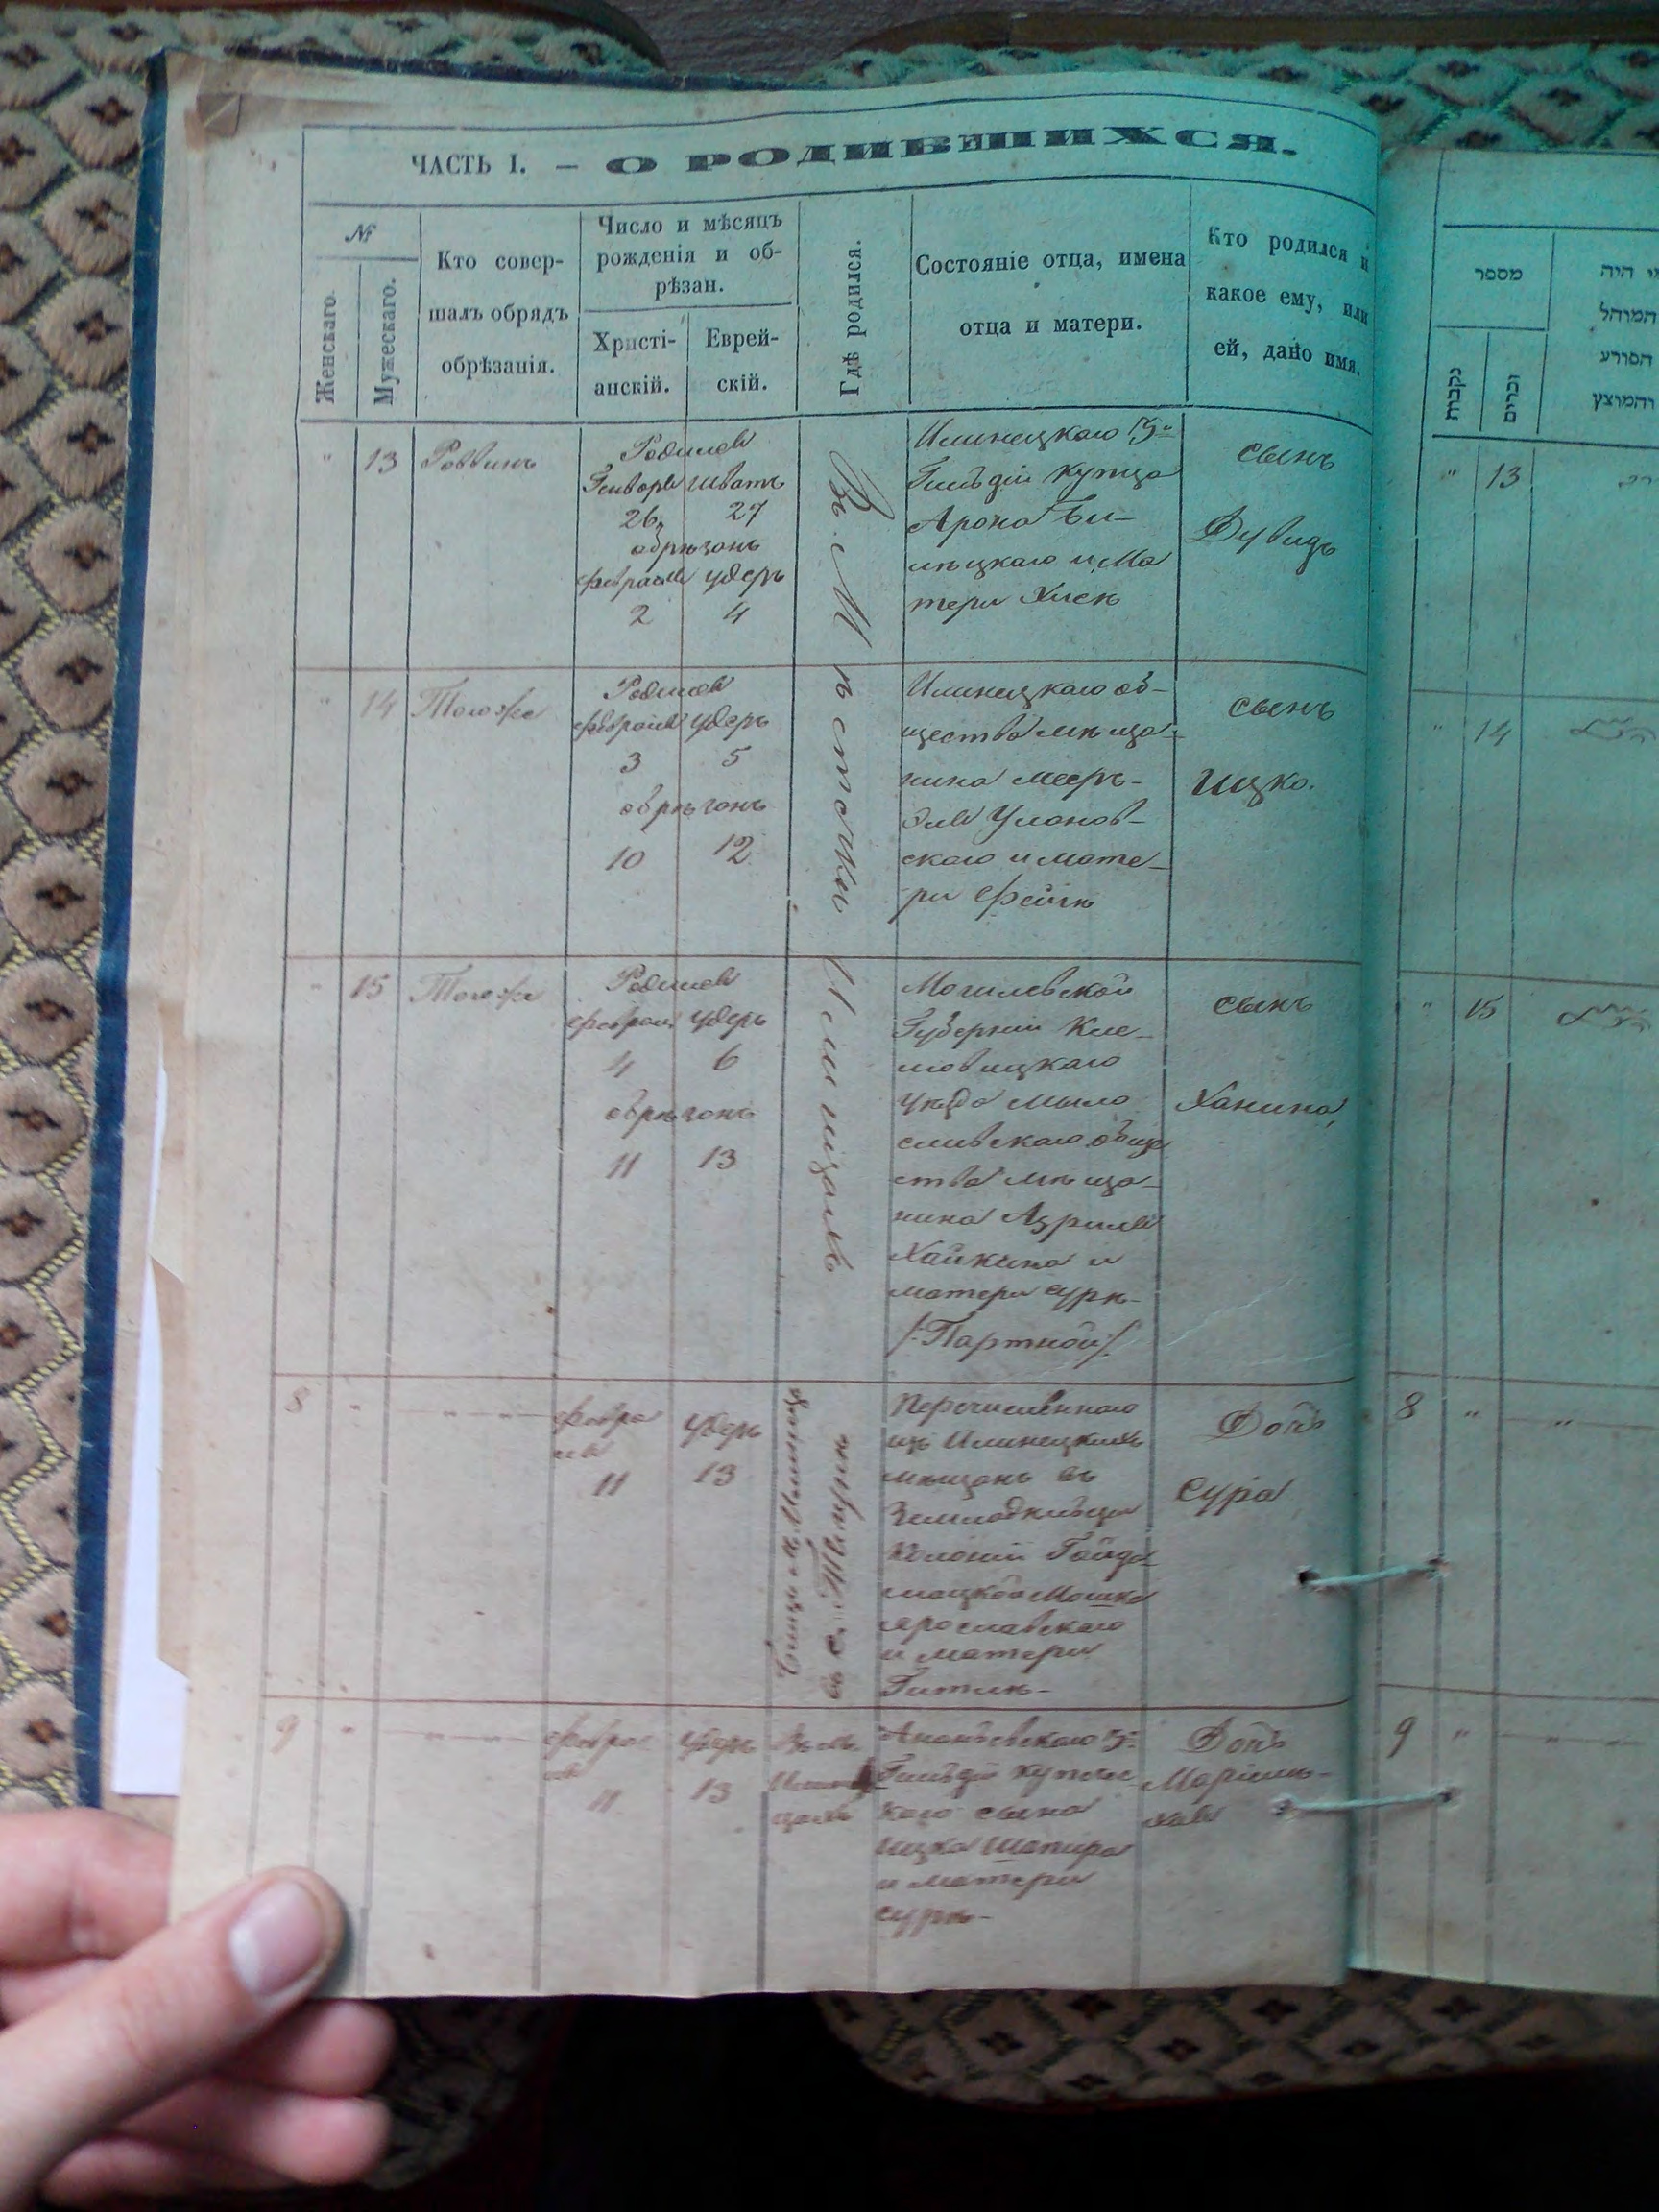 ЧАСТЬ I. — О РОДИВШИХСЯ.
№
Женскаго.
Мужескаго.
Кто совер-
шалъ обрядъ
обрѣзанія.
Число и мѣсяцъ
рожденія и об-
рѣзан.
Христі-
анскій.
Еврей-
скій.
Гдѣ родился.
Состояніе отца, имена
отца и матери.
Кто родился и
какое ему, или
ей, дано имя.
" 13 Раввинъ
Родился
Генваря Шватъ
26, 27
обрѣзанъ
февраля Удеръ
2 4
Въ Мѣстечки Илинцахъ
Илинецкаго 3й
Гильдіи Купца
Арона Би-
лѣцкаго и Ма
тери Хиск
сынъ
Дувидъ
" 14 Тогоже
Родился
февраля Удеръ
3 5
обрѣзанъ
10 12
Илинецкаго об-
щества мѣща-
нина Мееръ-
Эля Уланов-
скаго и мате-
ри Фейгѣ
сынъ
Ицко.
" 15 Тогоже
Родился
феврал. Удеръ
4 6
обрѣзанъ
11 13
Могилевской
Губерніи Кли-
мовицкаго
Уѣзда Мыло
славскаго обще
ства мѣща-
нина Азриля
Хайкина и
матери Сурѣ-
/:Партной/:
сынъ
Ханина,
8 " — " —
февра
ля
11
Удеръ
13
Перечисленнаго
изъ Илинецкихъ
мѣщанъ въ
Земледѣльци
Колоніи Гайда
мацкой Мошка
Ярославскаго
и матери
Гитлѣ-
Доч
Сура
9 " — " —
февра
ля
11
Удеръ
13
Въ м.
Илин
цахъ
Ананьевскаго 3й
Гильдіи купече
каго сына
Ицка Шапира
и матери
Сурѣ-
Доч
Маріям-
хая
מספר
נקבות
זכרים
מי היה
המוהל
הסורע
והמוצץ
" 13
" 14
" 15
8 " — " —
9 " — " —